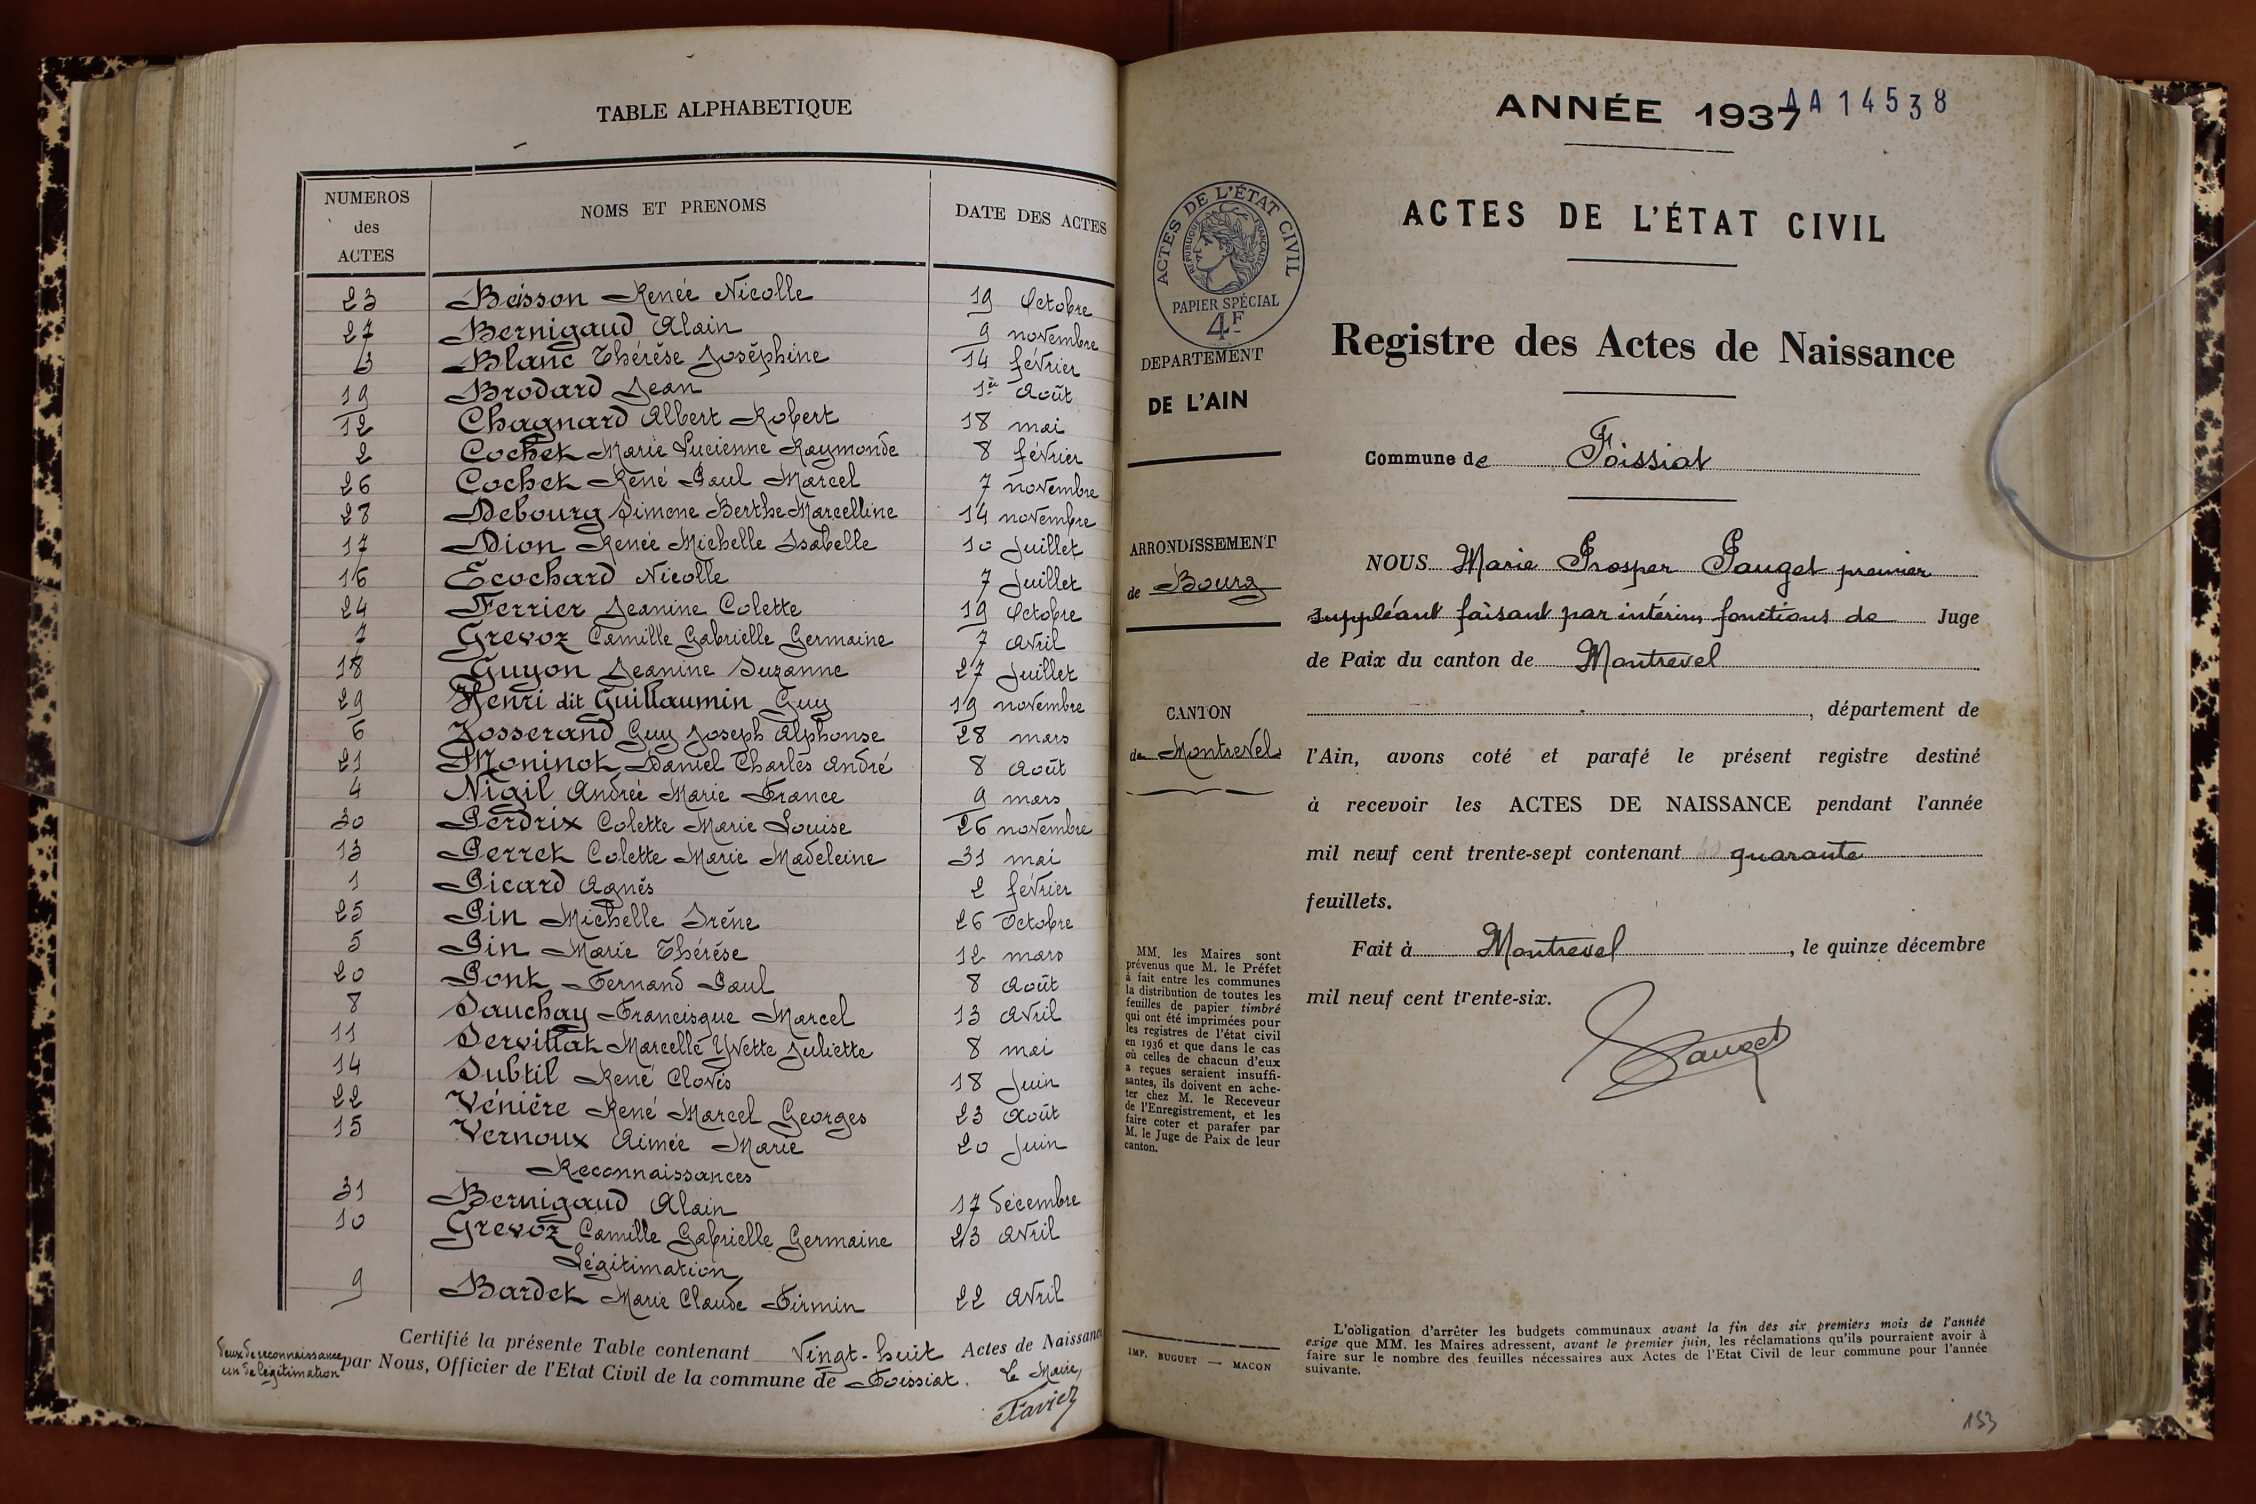 TABLE ALPHABETIQUE
NUMEROS des ACTES NOMS ET PRENOMS DATE DES ACTES
23 Beisson Renée Nicolle 19 Octobre
27 Bernigaud Alain 9 novembre
3 Blanc Thérèse Joséphine 14 février
19 Brodard Jean 1er Août
12 Chagnard Albert Robert 18 mai
2 Cochet Marie Lucienne Raymonde 8 février
26 Cochet René Paul Marcel 7 novembre
28 Debourg Simone Berthe Marcelline 14 novembre
17 Dion Renée Michelle Isabelle 10 Juillet
16 Ecochard Nicolle 7 Juillet
24 Ferrier Jeanine Colette 19 Octobre
7 Grevoz Camille Gabrielle Germaine 7 avril
18 Guyon Jeanine Suzanne 27 Juillet
29 Henri dit Guillaumin Guy 19 novembre
6 Josserand Guy Joseph Alphonse 28 mars
21 Moninot Daniel Charles André 8 Août
4 Nigil Andrée Marie France 9 mars
30 Perdrix Colette Marie Louise 26 novembre
13 Perret Colette Marie Madeleine 31 mai
1 Picard Agnès 2 février
25 Pin Michelle Irène 26 octobre
5 Pin Marie Thérèse 12 mars
20 Pont Fernand Paul 8 Août
8 Sauchay Francisque Marcel 13 avril
11 Servillat Marcelle Yvette Juliette 8 mai
14 Subtil René Clovis 18 Juin
22 Vénière René Marcel Georges 23 Août
15 Vernoux Aimée Marie 20 Juin
Reconnaissances
31 Bernigaud Alain 17 décembre
10 Grevoz Camille Gabrielle Germaine 23 avril
Légitimation
9 Bardet Marie Claude Firmin 22 avril
Certifié la présente Table contenant Vingt-huit Actes de Naissance
deux de reconnaissance
un de légitimation
par Nous, Officier de l'Etat Civil de la commune de Foissiat. Le Maire,
ANNÉE 1937
AA14538
ACTES DE L'ÉTAT CIVIL
ACTES DE L'ÉTAT CIVIL
RÉPUBLIQUE FRANÇAISE
PAPIER SPÉCIAL
4F
Registre des Actes de Naissance
DEPARTEMENT
DE L'AIN
Commune de Foissiat
ARRONDISSEMENT
de Bourg
CANTON
de Montrevel
NOUS Marie Prosper Pauget premier
suppléant faisant par intérim fonctions de Juge
de Paix du canton de Montrevel
, département de
l'Ain, avons coté et parafé le présent registre destiné
à recevoir les ACTES DE NAISSANCE pendant l'année
mil neuf cent trente-sept contenant quarante
feuillets.
Fait à Montrevel, le quinze décembre
mil neuf cent trente-six.
Pauget
MM. les Maires sont
prévenus que M. le Préfet
à fait entre les communes
la distribution de toutes les
feuilles de papier timbré
qui ont été imprimées pour
les registres de l'état civil
en 1936 et que dans le cas
où celles de chacun d'eux
a reçues seraient insuffi-
santes, ils doivent en ache-
ter chez M. le Receveur
de l'Enregistrement, et les
faire coter et parafer par
M. le Juge de Paix de leur
canton.
IMP. BUGUET — MACON
L'obligation d'arrêter les budgets communaux avant la fin des six premiers mois de l'année
exige que MM. les Maires adressent, avant le premier juin, les réclamations qu'ils pourraient avoir à
faire sur le nombre des feuilles nécessaires aux Actes de l'Etat Civil de leur commune pour l'année
suivante.
153